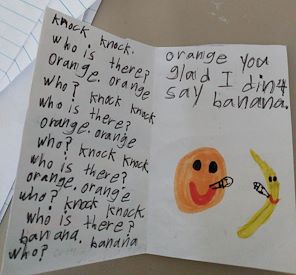 knock knock.
who is there?
Orang. orange
who? knock knock
who is there?
orange. orange
who? knock knock
who is there?
orange. orange
who? knock knock
who is there?
banana. banana
who?
orange you
glad I dint
say banana.